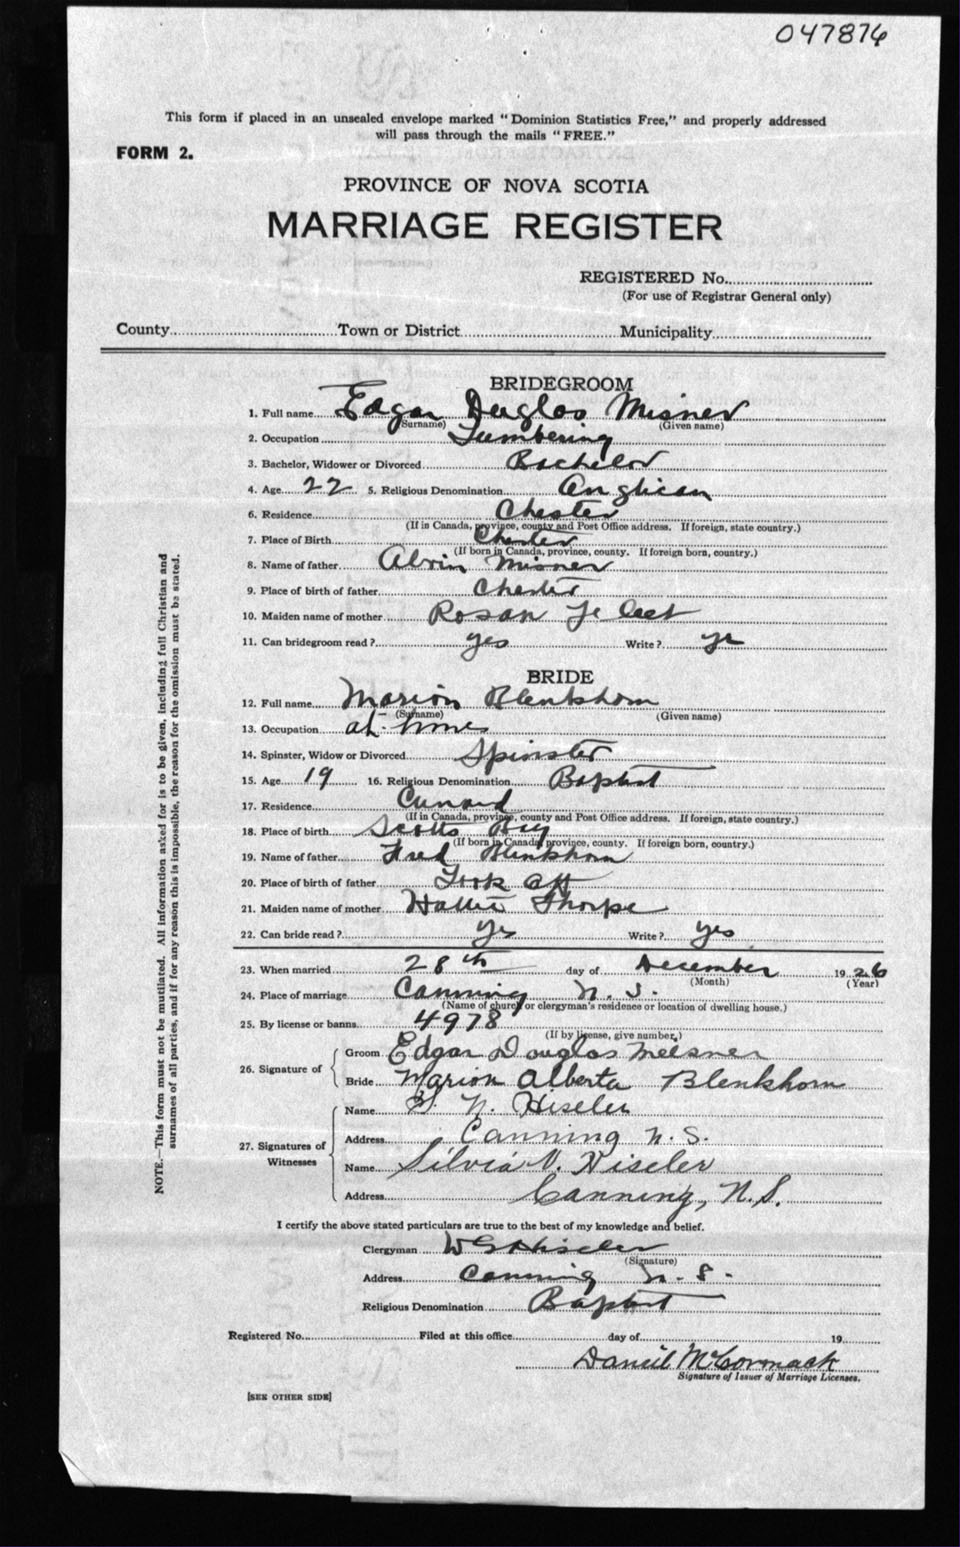 047876
This form if placed in an unsealed envelope marked "Dominion Statistics Free," and properly addressed
will pass through the mails "FREE."
FORM 2.
PROVINCE OF NOVA SCOTIA
MARRIAGE REGISTER
REGISTERED No.
(For use of Registrar General only)
County Town or District Municipality
BRIDEGROOM
1. Full name Edgar Duglas Misner
(Surname) (Given name)
2. Occupation Lumbering
3. Bachelor, Widower or Divorced Bachelor
4. Age 22 5. Religious Denomination Anglican
6. Residence Chester
(If in Canada, province, county and Post Office address. If foreign, state country.)
7. Place of Birth Chester
(If born in Canada, province, county. If foreign born, country.)
8. Name of father Alvin Misner
9. Place of birth of father Chester
10. Maiden name of mother Rosan
11. Can bridegroom read? yes Write? ye
BRIDE
12. Full name Marion Blenkhorn
(Surname) (Given name)
13. Occupation at home
14. Spinster, Widow or Divorced Spinster
15. Age 19 16. Religious Denomination Baptist
17. Residence Cunard
(If in Canada, province, county and Post Office address. If foreign, state country.)
18. Place of birth Scotts Bay
(If born in Canada, province, county. If foreign born, country.)
19. Name of father Fred Blenkhorn
20. Place of birth of father
21. Maiden name of mother Hattie Thorpe
22. Can bride read? yes Write? yes
23. When married 28th day of December 1926
(Month) (Year)
24. Place of marriage Canning N. S.
(Name of church or clergyman's residence or location of dwelling house.)
25. By license or banns 4978
(If by license, give number.)
26. Signature of
Groom Edgar Douglas Meisner
Bride Marion Alberta Blenkhorn
27. Signatures of Witnesses
Name N. Hiseler
Address Canning N. S.
Name Silvia V. Hiseler
Address Canning, N.S.
I certify the above stated particulars are true to the best of my knowledge and belief.
Clergyman W G Hiseler
(Signature)
Address Canning N. S.
Religious Denomination Baptist
Registered No. Filed at this office day of 19
Daniel McCormack
Signature of Issuer of Marriage Licenses.
[SEE OTHER SIDE]
NOTE.—This form must not be mutilated. All information asked for is to be given, including full Christian and
surnames of all parties, and if for any reason this is impossible, the reason for the omission must be stated.